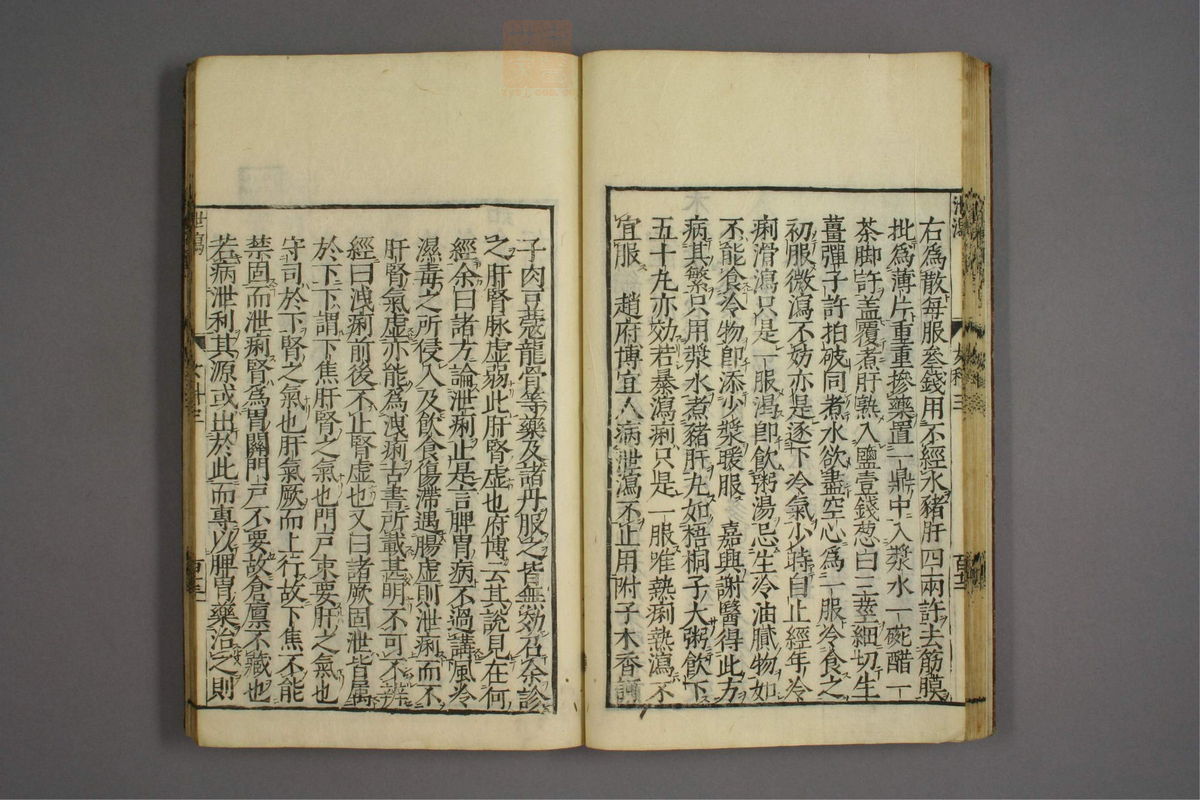 右爲散每服叄錢用不經水豬肝四兩許去筋膜
批爲薄片重重摻藥置一鼎中入漿水一碗醋一
茶脚許盖覆煮肝熟入鹽壹錢葱白三莖細切生
薑彈子許拍破同煮水欲盡空心爲一服冷食之
初服微瀉不妨亦是逐下冷氣少時自止經年冷
痢滑瀉只是一服渴卽飲粥湯忌生冷油膩物如
不能食冷物卽添少漿暖服 嘉興謝醫得此方
病其繁只用漿水煮豬肝丸如梧桐子大粥飲下
五十丸亦効若暴瀉痢只是一服唯熱痢熱瀉不
宜服 趙府博宜人病泄瀉不止用附子木香訶
子肉豆蔻龍骨等藥及諸丹服之皆無効召余診
之肝腎脉虛弱此肝腎虛也府博云其說見在何
經余曰諸方論泄痢止是言脾胃病不過講風冷
濕毒之所侵入及飲食傷滯遇腸虛則泄痢而不
肝腎氣虛亦能爲洩痢古書所載甚明不可不辨
經曰洩痢前後不止腎虛也又曰諸厥固泄皆属
於下下謂下焦肝腎之氣也門戶束要肝之氣也
守司於下腎之氣也肝氣厥而上行故下焦不能
禁固而泄痢腎爲胃關門戶不要故倉廩不藏也
若病泄利其源或出於此而專以脾胃藥治之則
泄瀉